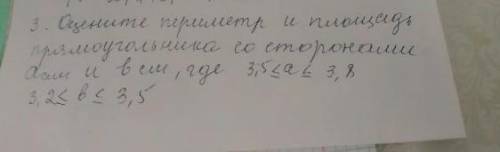 3. Оцените периметр и площадь
прямоугольника со сторонами
a см и b см, где 3,5 ≤ a ≤ 3,8
3,2 ≤ b ≤ 3,5